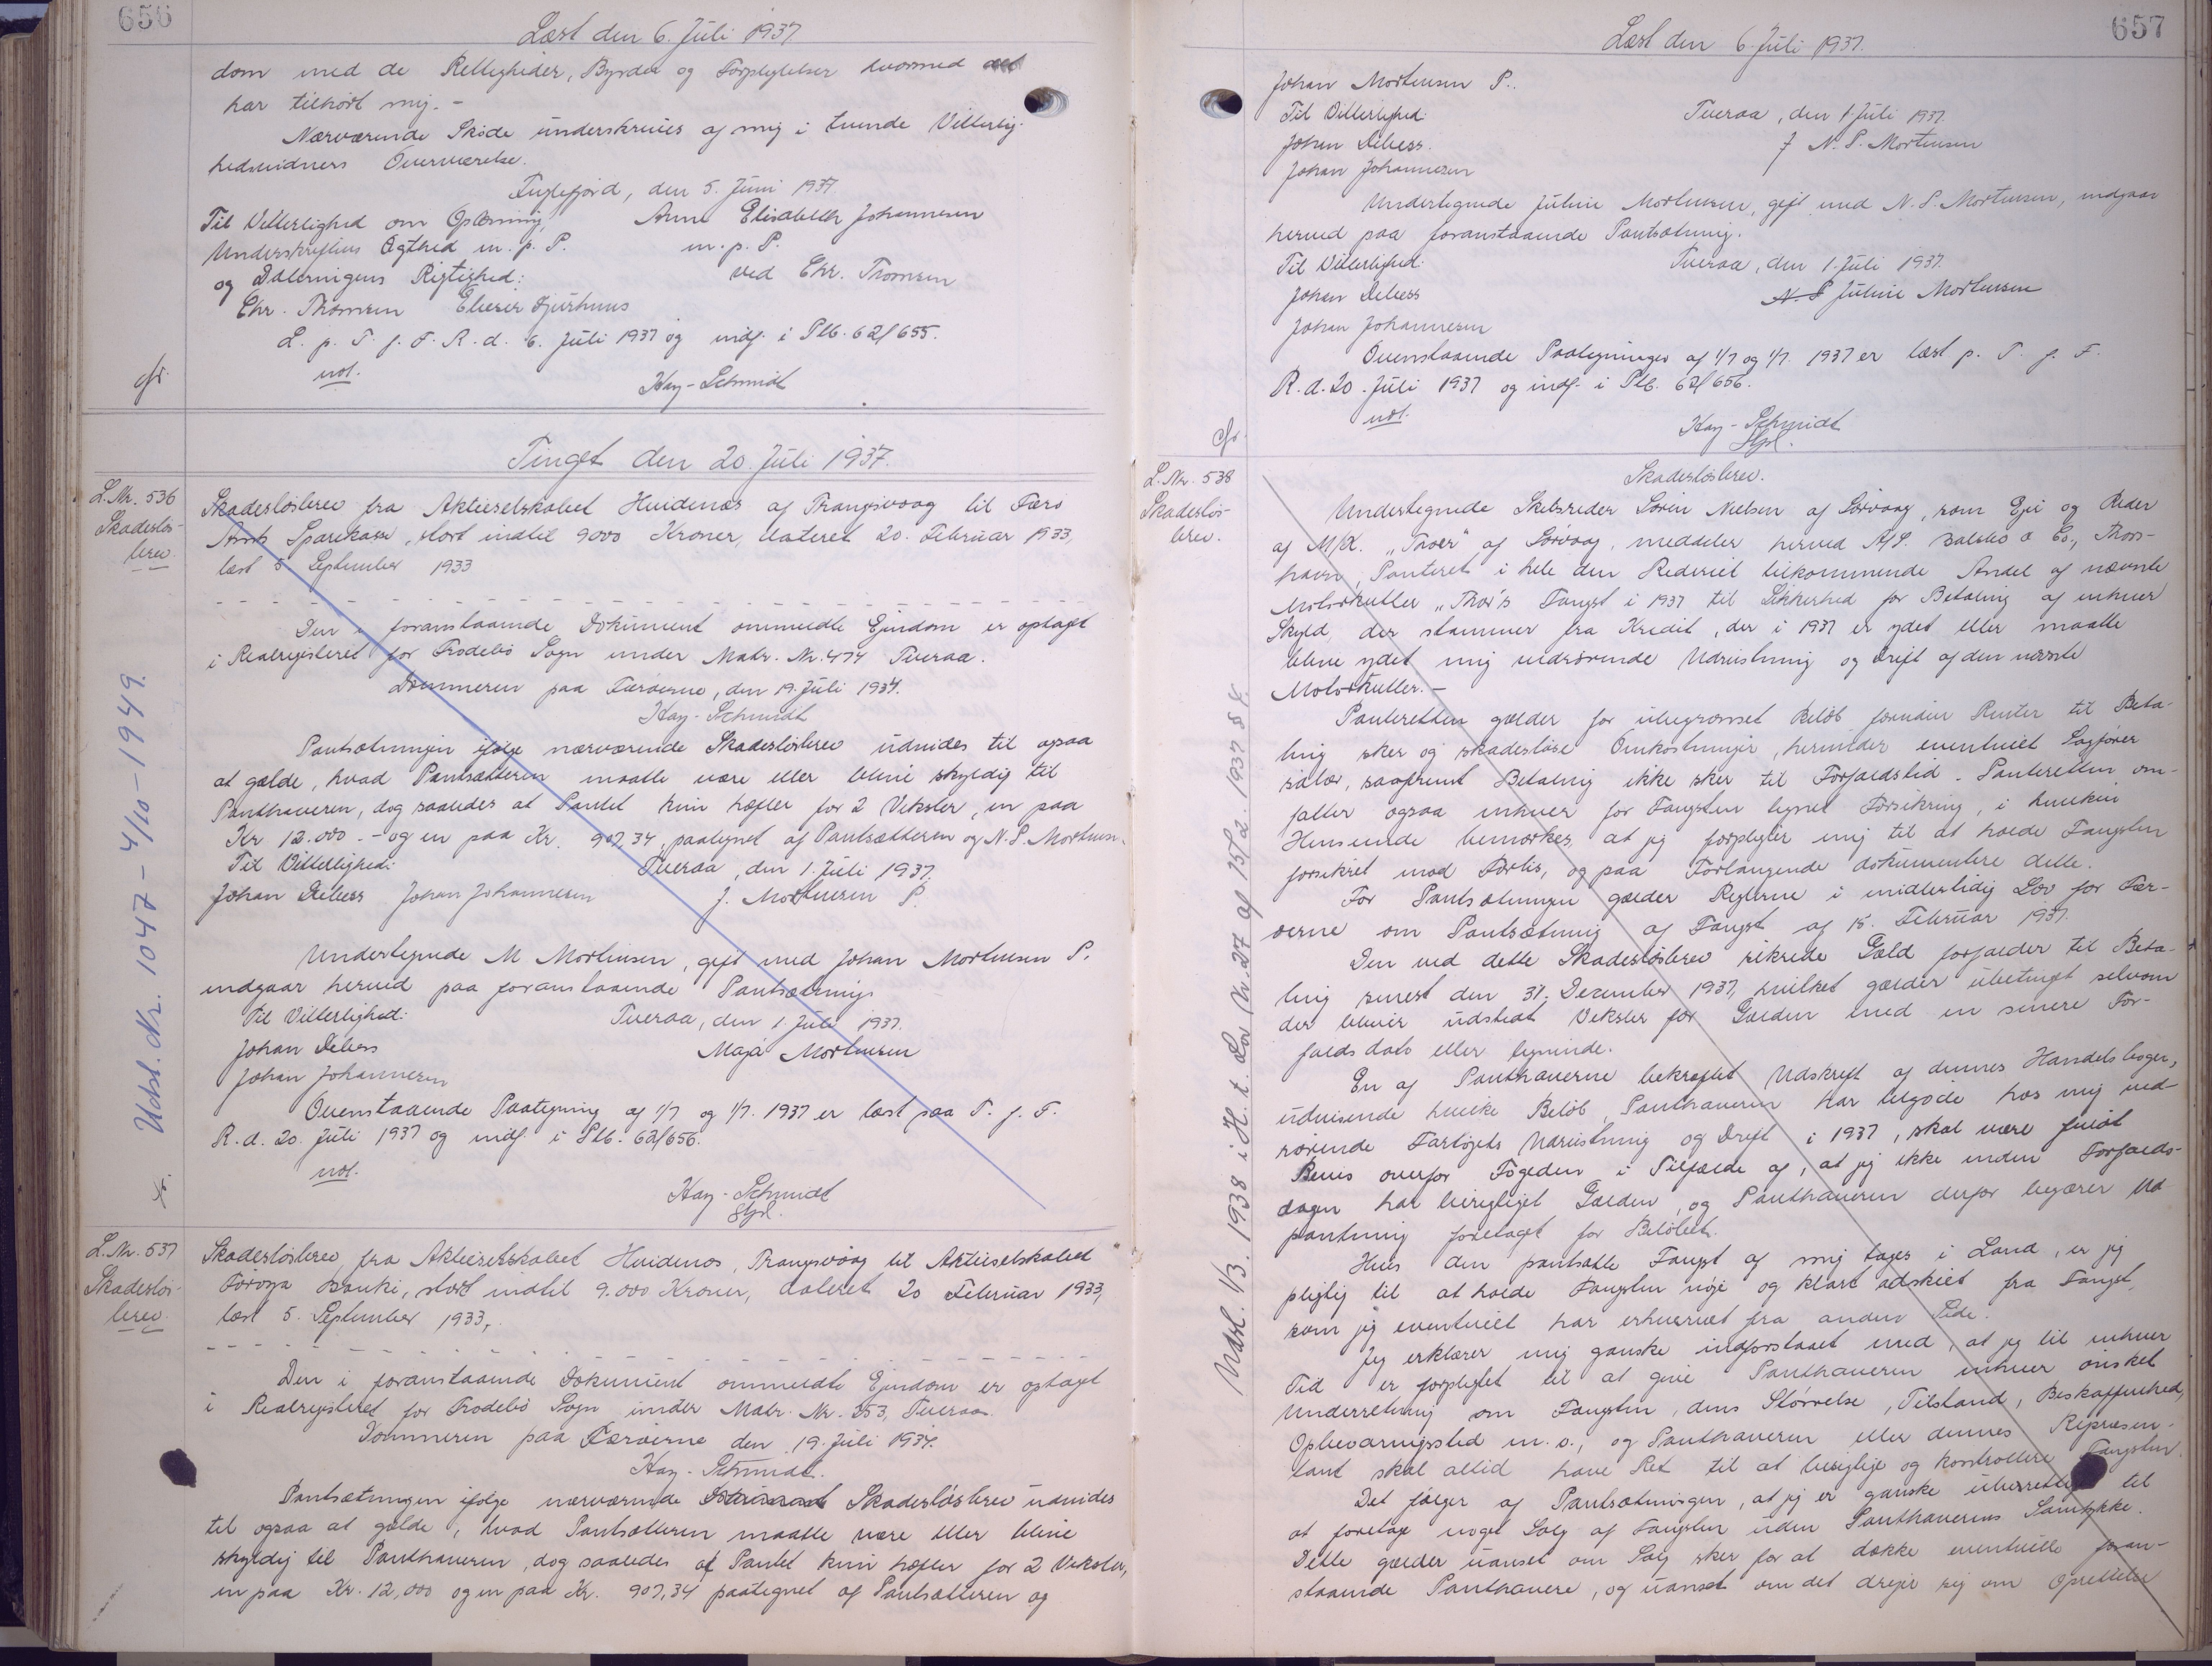 656
Læst den 6. Juli 1937
dom med de Rettigheder, Byrder og Forpligtelser hvormed det
har tilhørt mig. -
Nærværende Skøde underskrives af mig i tvende Vitterlig-
hedsvidners Overværelse.
Fuglefjord, den 5. Juni 1937.
Til Vitterlighed om Oplæsning, Anne Elisabeth Johannesen
Underskriftens Ægthed m. p. P. m. p. P.
og Dateringens Rigtighed: ved Chr. Thomsen
Chr. Thomsen Elieser Djurhuus
L. p. T. f. F. R. d. 6. Juli 1937 og indf. i Plb. 62/655.
ucl.
Kay-Schmidt
cfr.
Tinget den 20. Juli 1937.
L. Nr. 536
Skadesløs-
brev.
Skadesløsbrev fra Aktieselskabet Hvidenæs af Trangisvaag til Færø
Amts Sparekasse, stort indtil 9000 Kroner, dateret 20. Februar 1933,
læst 5 September 1933
Den i foranstaaende Dokument ommeldte Ejendom er optaget
i Realregisteret for Frodebø Sogn under Matr. Nr. 474 Tveraa.
Dommeren paa Færøerne, den 19. Juli 1934.
Kay-Schmidt
Pantsætningen ifølge nærværende Skadesløsbrev udvides til ogsaa
at gælde, hvad Pantsætteren maatte være eller blive skyldig til
Panthaveren, dog saaledes at Pantet kun hæfter for 2 Veksler, en paa
Kr 12.000. - og en paa Kr. 907,34, paategnet af Pantsætteren og N. P. Mortensen.
Til Vitterlighed: Tveraa, den 1. Juli 1937.
Johan Debess Johan Johannesen J. Mortensen P.
Undertegnede M Mortensen, gift med Johan Mortensen P.
indgaar herved paa foranstaaende Pantsætning.
Til Vitterlighed: Tveraa, den 1. Juli 1937.
Johan Debess Maja Mortensen
Johan Johannesen
Ovenstaaende Paategning af 1/7 og 1/7. 1937 er læst paa T. f. F.
R. d. 20. Juli 1937 og indf. i Plb. 62/656.
ucl.
Kay-Schmidt
Udsl. Nr. 1047 - 4/10 - 1949.
L. Nr. 537
Skadesløs-
brev.
Skadesløsbrev fra Aktieselskabet Hvidenæs, Trangisvaag til Aktieselskabet
Føroya Banki, stort indtil 9.000 Kroner, dateret 20 Februar 1933,
læst 5. September 1933,.
Den i foranstaaende Dokument ommeldte Ejendom er optaget
i Realregisteret for Frodebø Sogn under Matr. Nr. 353, Tveraa.
Dommeren paa Færøerne den 19. Juli 1934.
Kay-Schmidt.
Pantsætningen ifølge nærværende Skadesløsbrev udvides
til ogsaa at gælde, hvad Pantsætteren maatte være eller blive
skyldig til Panthaveren, dog saaledes at Pantet kun hæfter for 2 Veksler,
en paa Kr. 12,000 og en paa Kr. 907,34 paategnet af Pantsætteren og
657
Læst den 6. Juli 1937.
Johan Mortensen P..
Til Vitterlighed: Tveraa, den 1 Juli 1937.
Johan Debess. N. P. Mortensen
Johan Johannesen
Undertegnede Juline Mortensen, gift med N. P. Mortensen, indgaar
herved paa foranstaaende Pantsætning.
Til Vitterlighed: Tveraa, den 1. Juli 1937.
Johan Debess N. P Juline Mortensen
Johan Johannesen
Ovenstaaende Paategninger af 1/7 og 1/7. 1937 er læst p. T. f. F.
R. d. 20. Juli 1937 og indf. i Plb. 62/656.
ucl.
Kay-Schmidt
cfr.
L. Nr. 538
Skadesløs-
brev.
Skadesløsbrev.
Undertegnede Skibsreder Sørin Nielsen af Sørvaag, som Ejer og Reder
af M/K. "Thor" af Sørvaag, meddeler herved A/S. Valdbo & Co., Thors-
havn, Panteret i hele den Rederiet tilkommende Andel af nævnte
Motorkutter "Thor's Fangst i 1937 til Sikkerhed for Betaling af enhver
Skyld, der stammer fra Kredit, der i 1937 er ydet eller maatte
blive ydet mig vedrørende Udrustning og Drift af den nævnte
Motorkutter. -
Panteretten gælder for ubegrænset Beløb foruden Renter til Beta-
ling sker og skadesløse Omkostninger, herunder eventuelt Sagfører
salær, saafremt Betaling ikke sker til Forfaldstid. Panteretten om-
fatter ogsaa enhver for Fangsten tegnet Forsikring, i hvilken
Henseende bemærkes, at jeg forpligter mig til at holde Fangsten
forsikret mod Forlis, og paa Forlangende dokumentere dette.
For Pantsætningen gælder Reglerne i midlertidig Lov for Fær-
øerne om Pantsætning af Fangst af 15. Februar 1937.
Den ved dette Skadesløsbrev sikrede Gæld forfalder til Beta-
ling senest den 31. December 1937, hvilket gælder ubetinget selvom
der bliver udstedt Veksler for Gælden med en senere For-
faldsdato eller lignende.
En af Panthaverne bekræftet Udskrift af dennes Handelsbøger,
udvisende hvilke Beløb Panthaveren har tilgode hos mig ved-
rørende Fartøjets Udrustning og Drift i 1937, skal være fuldt
Bevis overfor Fogeden i Tilfælde af, at jeg ikke inden Forfalds-
dagen har berigtiget Gælden, og Panthaveren derfor begærer Ud-
pantning foretaget for Beløbet.
Hvis den pantsatte Fangst af mig tages i Land, er jeg
pligtig til at holde Fangsten nøje og klart adskilt fra Fangst,
som jeg eventuelt har erhvervet fra anden Side.
Jeg erklærer mig ganske indforstaaet med, at jeg til enhver
Tid er forpligtet til at give Panthaveren enhver ønsket
Underretning om Fangsten, dens Størrelse, Tilstand, Beskaffenhed,
Opbevaringssted m. v., og Panthaveren eller dennes Repræsen-
tant skal altid have Ret til at besigtige og kontrollere Fangsten.
Det følger af Pantsætningen, at jeg er ganske uberettiget til
at foretage noget Salg af Fangsten uden Panthaverens Samtykke.
Dette gælder uanset om Salg sker for at dække eventuelle foran-
staaende Panthavere, og uanset om det drejer sig om Oprettelse
Udsl. 1/3. 1938 i H. t. Lov Nr. 27 af 15/2. 1937 § 4.